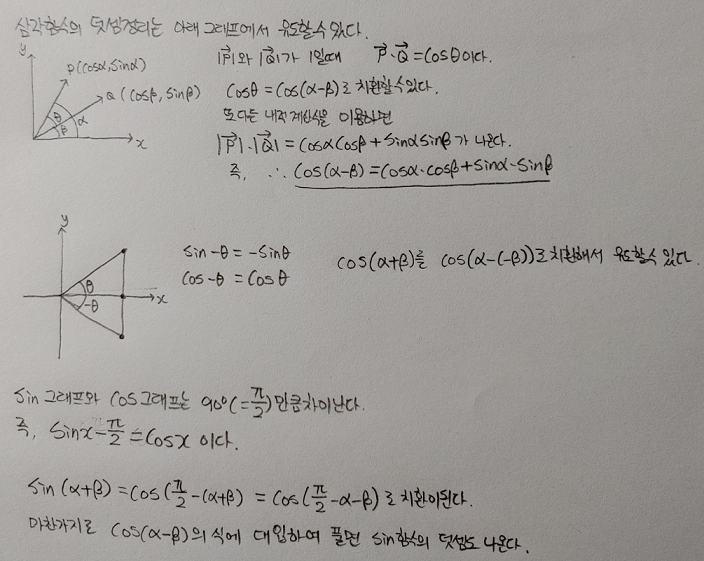 삼각함수의 덧셈정리는 아래 그래프에서 유도할수 있다.
y
P(cosα, sinα)
Q (cosβ, sinβ)
θ
β
α
x
|P⃗|와 |Q⃗|가 1일때 P⃗·Q⃗ = cosθ이다.
cosθ = cos(α-β)로 치환할수있다.
또다른 내적 계산식을 이용하면
|P⃗|·|Q⃗| = cosαcosβ + sinαsinβ가 나온다.
즉, ∴ cos(α-β) = cosα·cosβ + sinα·sinβ
y
θ
-θ
x
sin -θ = -sinθ
cos -θ = cosθ
cos(α+β)를 cos(α-(-β))로 치환해서 유도할수 있다.
sin 그래프와 cos 그래프는 90°(=π/2)만큼차이난다.
즉, sinx - π/2 = cosx 이다.
sin (α+β) = cos(π/2 - (α+β) = cos(π/2 - α - β)로 치환이된다.
마찬가지로 cos(α-β)의 식에 대입하여 풀면 sin함수의 덧셈도 나온다.